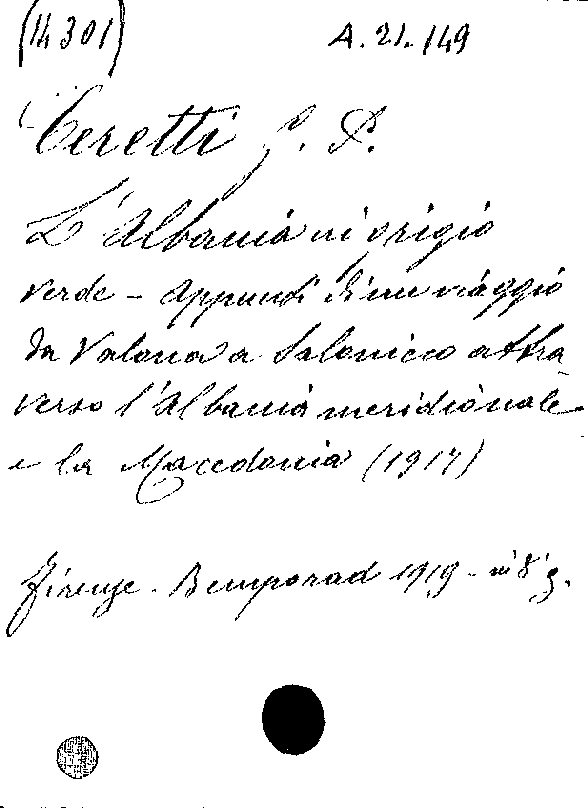 (14301) A. 21. 149
Ceretti G. P.
L'Albania in grigio
verde - Appunti di un viaggio
da Valona a Salonicco attra
verso l'Albania meridionale
e la Macedonia (1917)
Firenze - Bemporad 1919 - in 8° g.